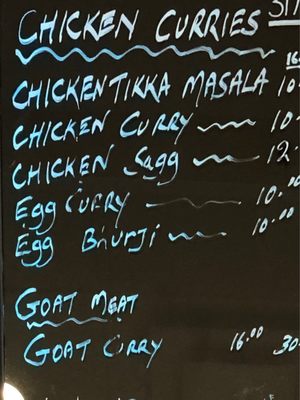 CHICKEN CURRIES
CHICKEN TIKKA MASALA 10.
CHICKEN CURRY 10.
CHICKEN Sagg 12.
Egg CURRY 10.00
Egg BHURJI 10.00
GOAT MEAT
GOAT CURRY 16.00 30.